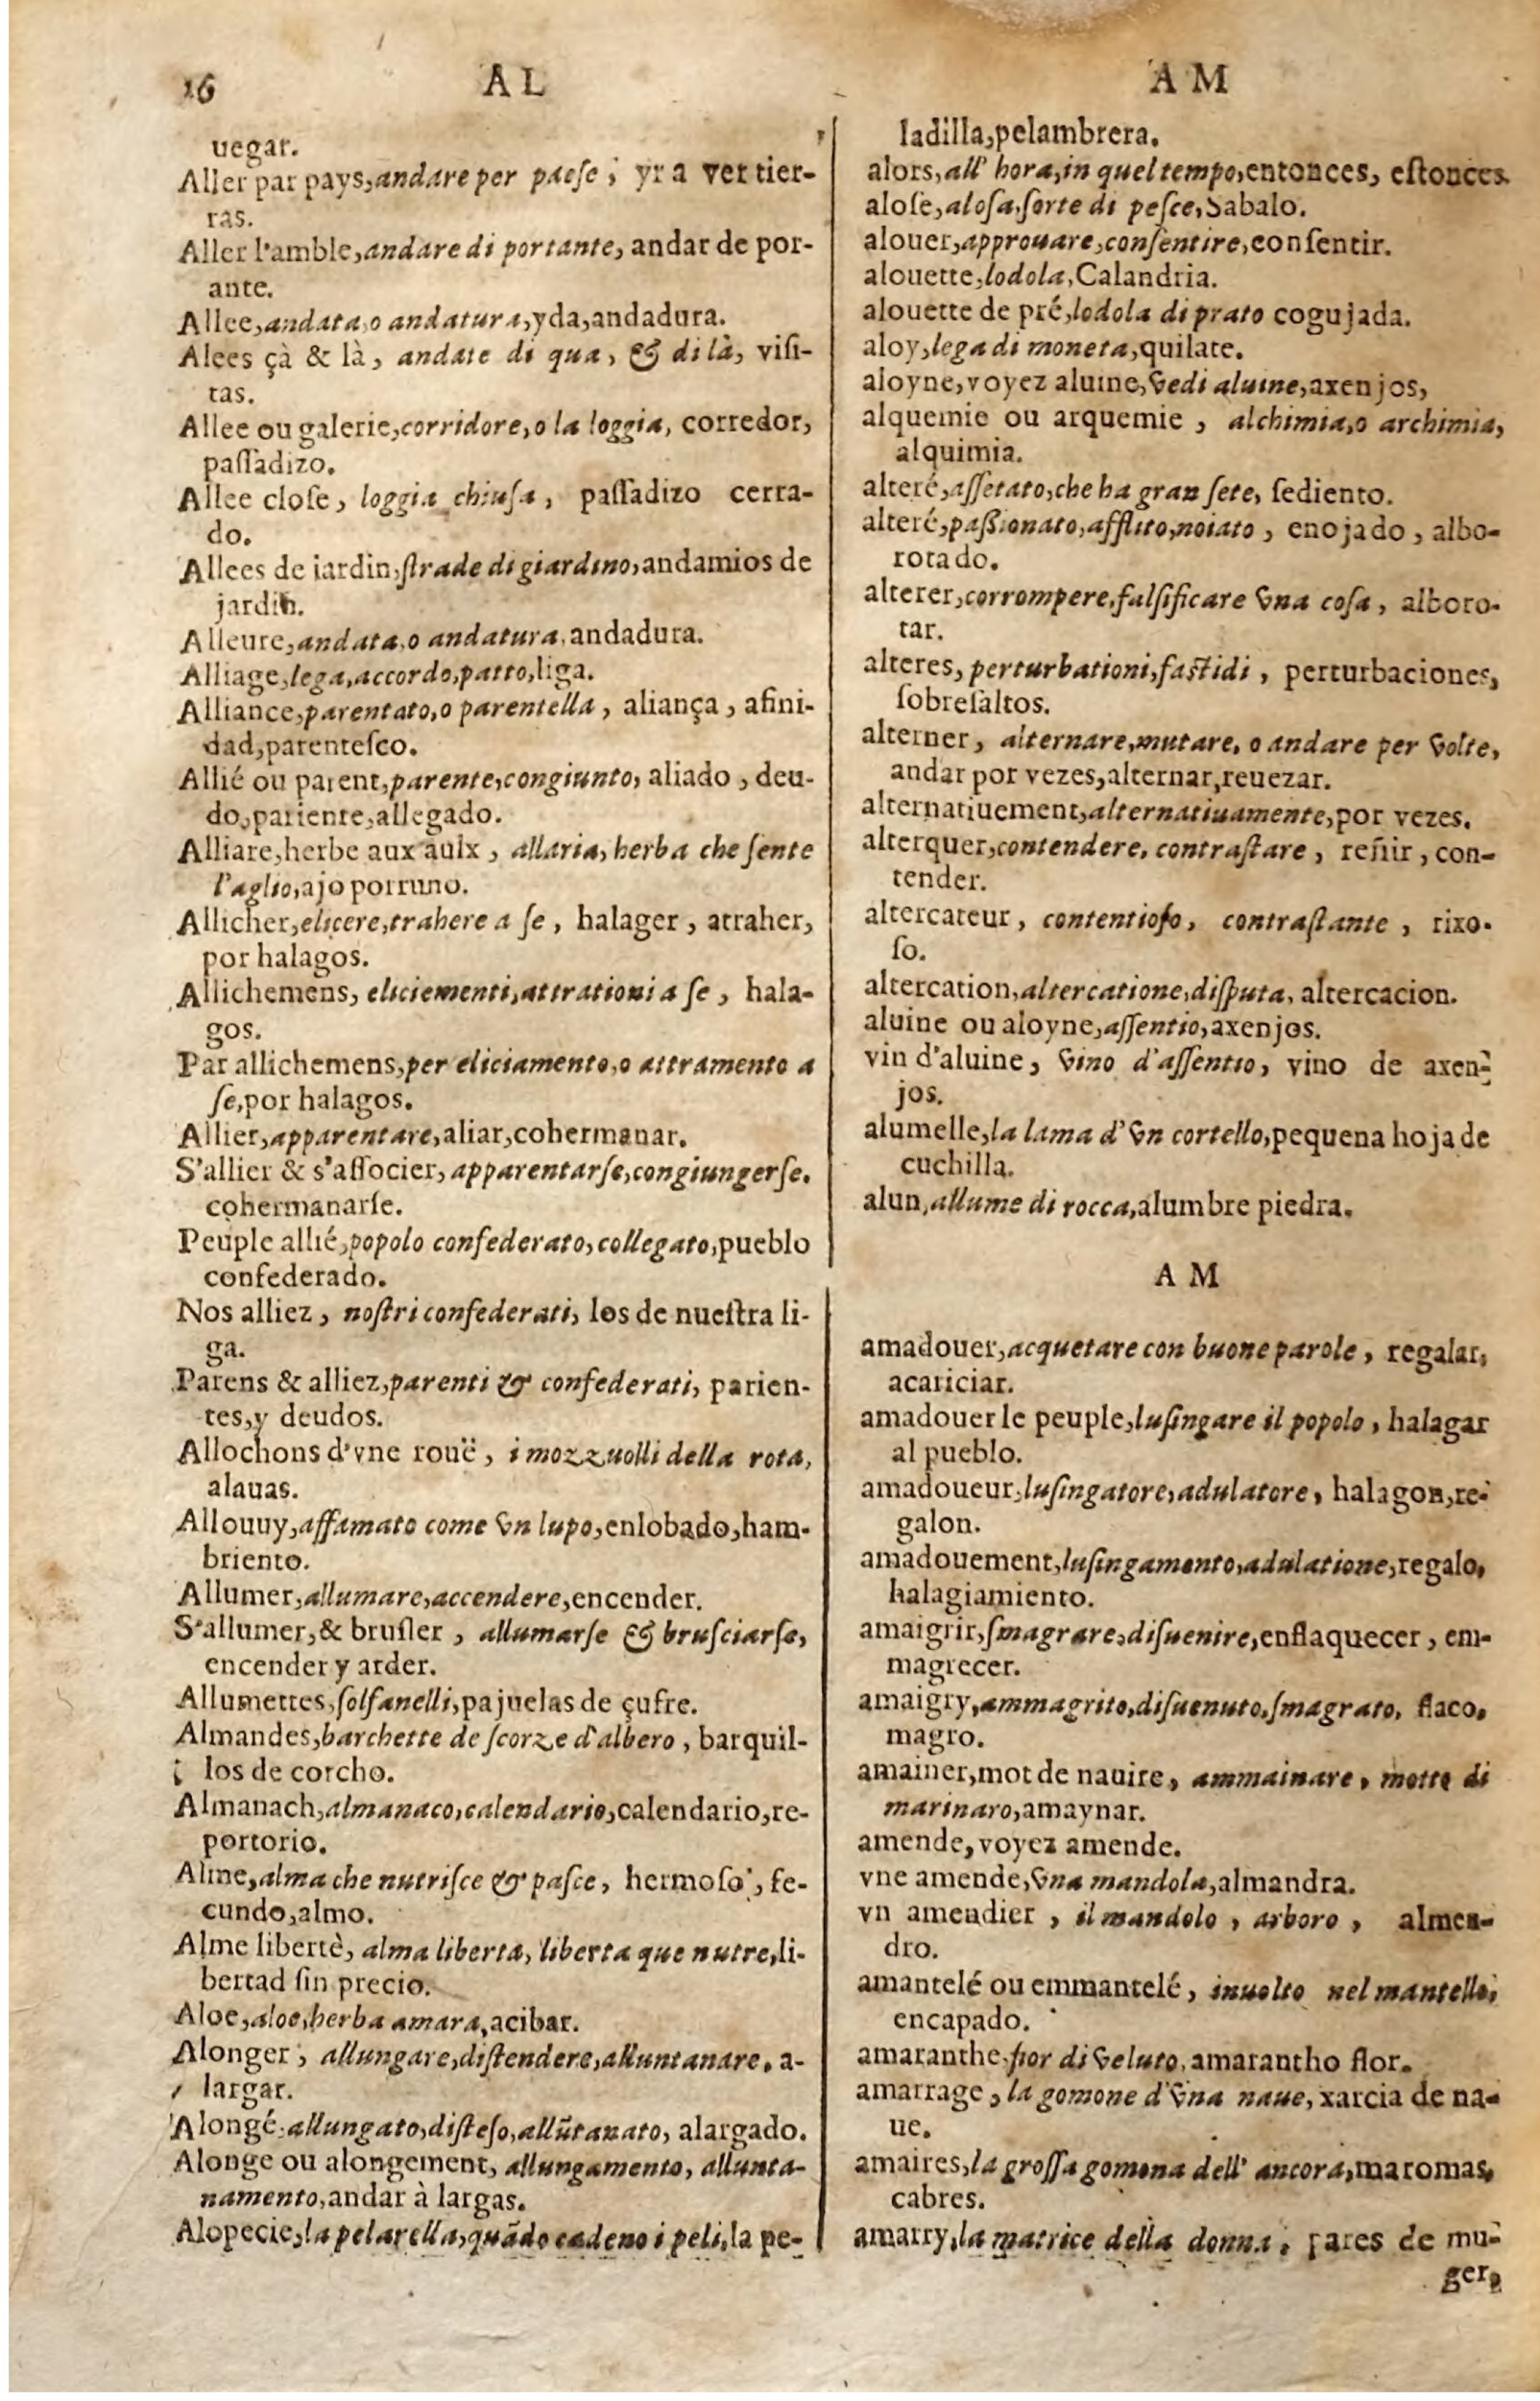 16 AL AM
uegar.
Aller par pays, andare per paese, yr a ver tier-
ras.
Aller l'amble, andare di portante, andar de por-
ante.
Allee, andata, o andatura, yda, andadura.
Alees çà & là, andate di qua, & di là, visi-
tas.
Allee ou galerie, corridore, o la loggia, corredor,
passadizo.
Allee close, loggia chiusa, passadizo cerra-
do.
Allees de iardin, strade di giardino, andamios de
jardin.
Alleure, andata, o andatura, andadura.
Alliage, lega, accordo, patto, liga.
Alliance, parentato, o parentella, aliança, afini-
dad, parentesco.
Allié ou parent, parente, congiunto, aliado, deu-
do, pariente, allegado.
Alliare, herbe aux aulx, allaria, herba che sente
l'aglio, ajo porruno.
Allicher, elicere, trahere a se, halager, atraher,
por halagos.
Allichemens, eliciementi, attrationi a se, hala-
gos.
Par allichemens, per eliciamento, o attramento a
se, por halagos.
Allier, apparentare, aliar, cohermanar.
S'allier & s'associer, apparentarse, congiungerse.
cohermanarse.
Peuple allié, popolo confederato, collegato, pueblo
confederado.
Nos alliez, nostri confederati, los de nuestra li-
ga.
Parens & alliez, parenti & confederati, parien-
tes, y deudos.
Allochons d'vne rouë, i mozzuolli della rota,
alauas.
Allouuy, affamato come vn lupo, enlobado, ham-
briento.
Allumer, allumare, accendere, encender.
S'allumer, & brusler, allumarse & brusciarse,
encender y arder.
Allumettes, solfanelli, pajuelas de çufre.
Almandes, barchette de scorze d'albero, barquil-
los de corcho.
Almanach, almanaco, calendario, calendario, re-
portorio.
Alme, alma che nutrisce & pasce, hermoso, fe-
cundo, almo.
Alme libertè, alma liberta, liberta que nutre, li-
bertad sin precio.
Aloe, aloe, herba amara, acibar.
Alonger, allungare, distendere, alluntanare, a-
largar.
Alongé, allungato, disteso, allũtanato, alargado.
Alonge ou alongement, allungamento, allunta-
namento, andar à largas.
Alopecie, la pelarella, quãdo cadeno i peli, la pe-
ladilla, pelambrera.
alors, all' hora, in quel tempo, entonces, estonces.
alose, alosa, sorte di pesce, Sabalo.
alouer, approuare, consentire, consentir.
alouette, lodola, Calandria.
alouette de pré, lodola di prato cogujada.
aloy, lega di moneta, quilate.
aloyne, voyez aluine, vedi aluine, axenjos,
alquemie ou arquemie, alchimia, o archimia,
alquimia.
alteré, assetato, che ha gran sete, sediento.
alteré, passionato, afflito, noiato, enojado, albo-
rotado.
alterer, corrompere, falsificare vna cosa, alboro-
tar.
alteres, perturbationi, fastidi, perturbaciones,
sobresaltos.
alterner, alternare, mutare, o andare per volte,
andar por vezes, alternar, reuezar.
alternatiuement, alternatiuamente, por vezes.
alterquer, contendere, contrastare, reñir, con-
tender.
altercateur, contentioso, contrastante, rixo-
so.
altercation, altercatione, disputa, altercacion.
aluine ou aloyne, assentio, axenjos.
vin d'aluine, vino d'assentio, vino de axen-
jos.
alumelle, la lama d'vn cortello, pequena hoja de
cuchilla.
alun, allume di rocca, alumbre piedra.
AM
amadouer, acquetare con buone parole, regalar,
acariciar.
amadouer le peuple, lusingare il popolo, halagar
al pueblo.
amadoueur, lusingatore, adulatore, halagon, re-
galon.
amadouement, lusingamento, adulatione, regalo,
halagiamiento.
amaigrir, smagrare, disuenire, enflaquecer, em-
magrecer.
amaigry, ammagrito, disuenuto, smagrato, flaco,
magro.
amainer, mot de nauire, ammainare, motto di
marinaro, amaynar.
amende, voyez amende.
vne amende, vna mandola, almandra.
vn amendier, il mandolo, arboro, almen-
dro.
amantelé ou emmantelé, inuolto nel mantello,
encapado.
amaranthe, fior di veluto, amarantho flor.
amarrage, la gomone d'vna naue, xarcia de na-
ue.
amaires, la grossa gomona dell' ancora, maromas,
cabres.
amarry, la matrice della donna, pares de mu-
ger,